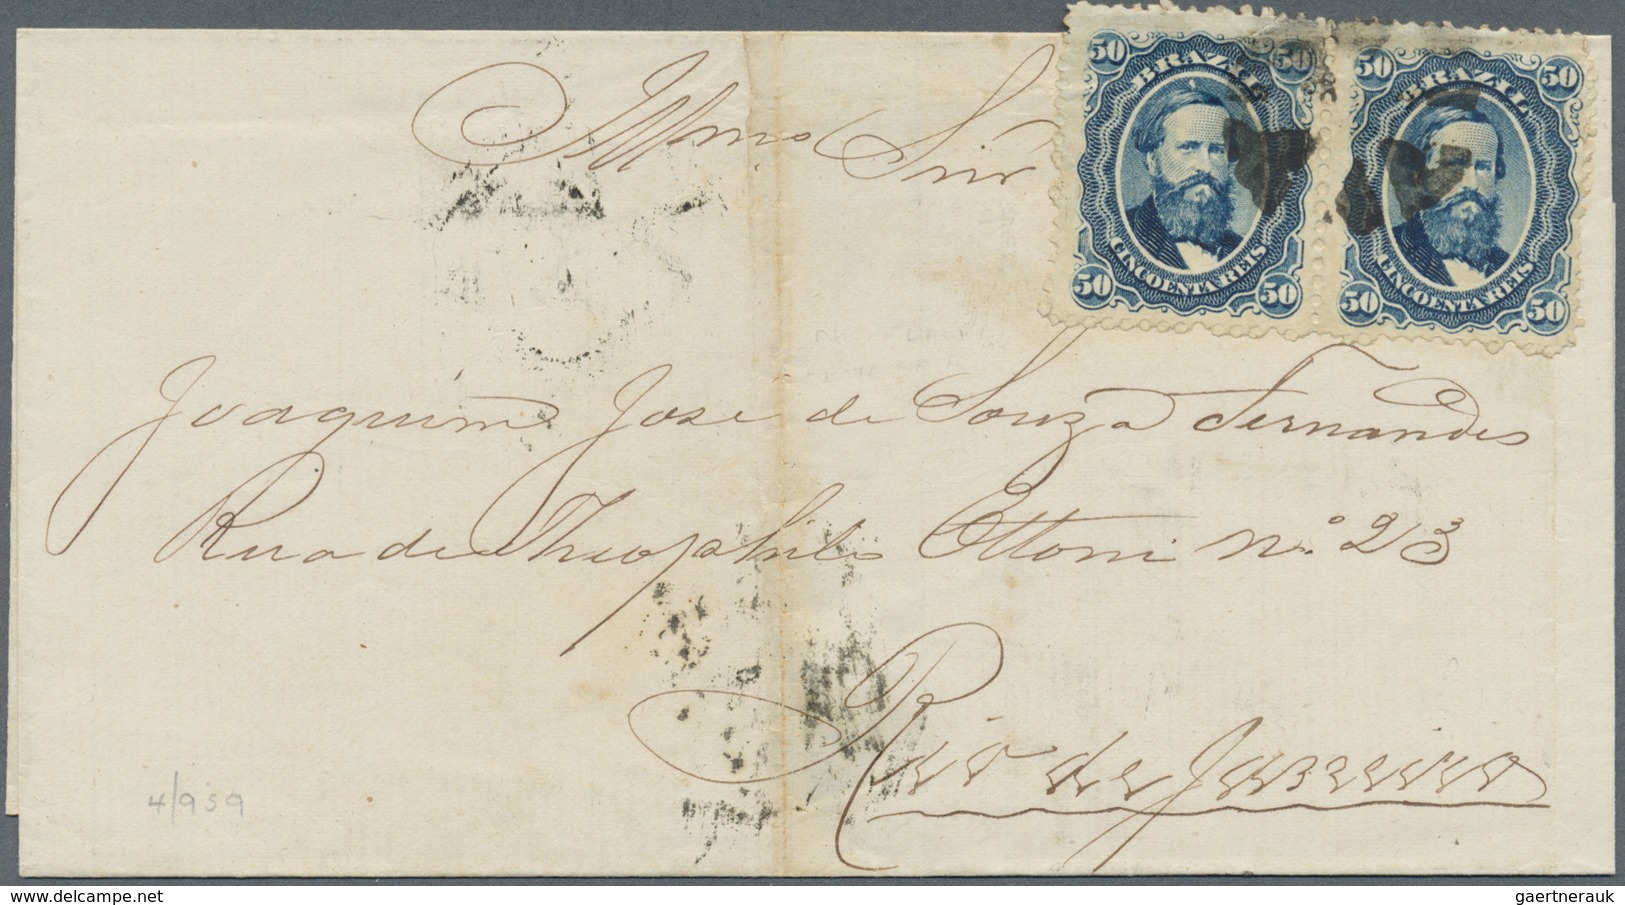 Illmo Snr
50 BRAZIL 50
CINCOENTA REIS
50 50
50 BRAZIL 50
CINCOENTA REIS
50 50
Joaquim Jose de Souza Fernandes
Rua de Theophilo Ottoni nº 23
Rio de Janeiro
4/959
4,927 €
gaertnerauk